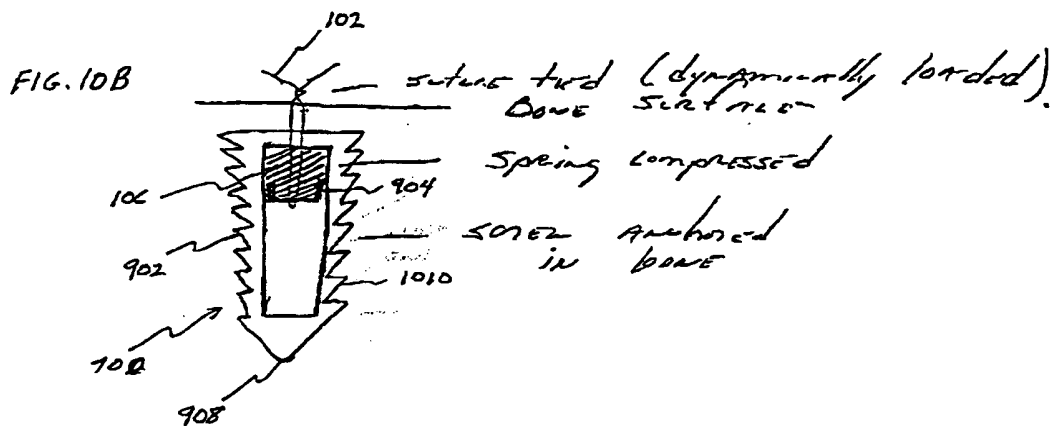 102
FIG. 10B
suture tied (dynamically loaded).
Bone surface
spring compressed
106
904
screw anchored
in bone
902
1010
700
908